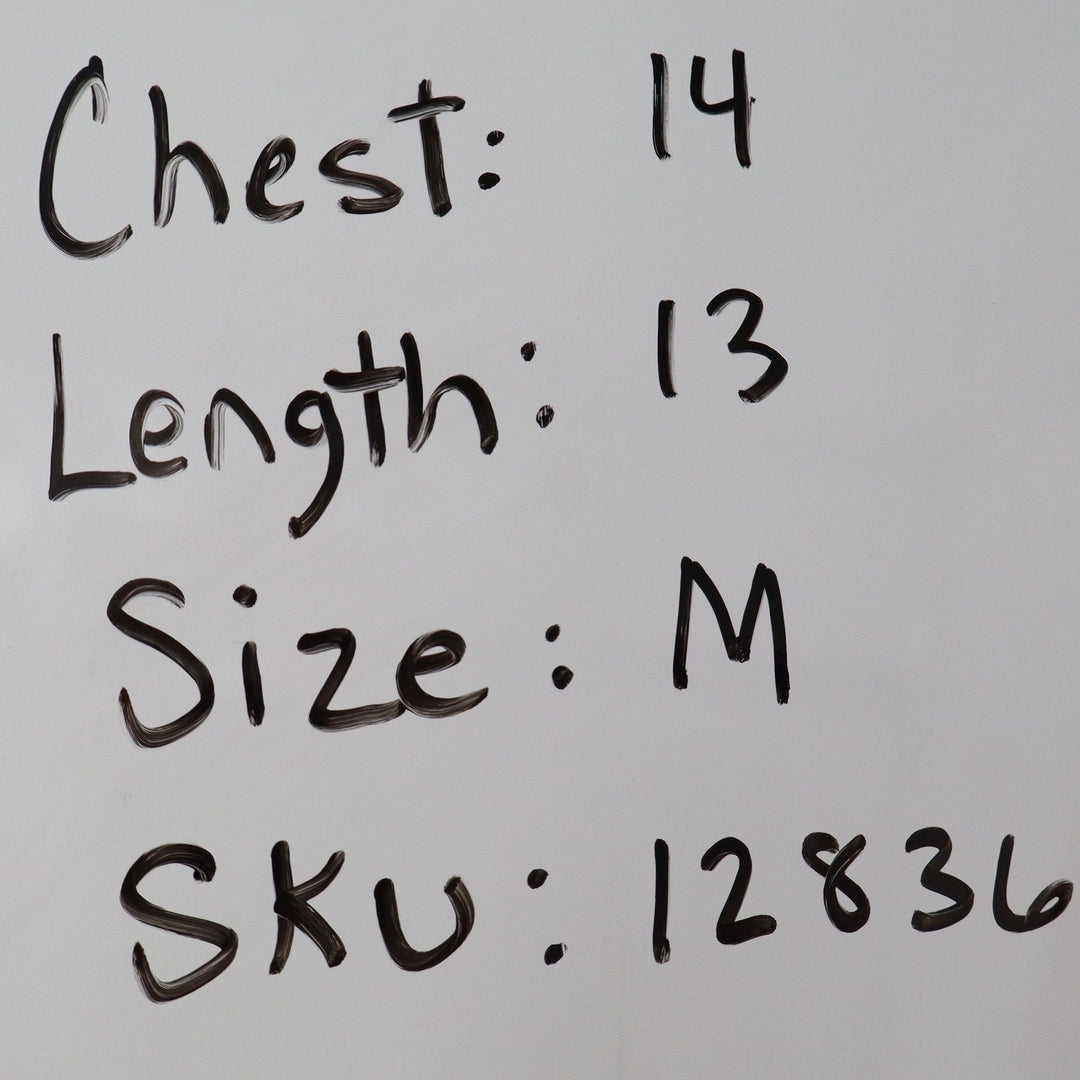 Chest: 14
Length: 13
Size: M
SKU: 12836